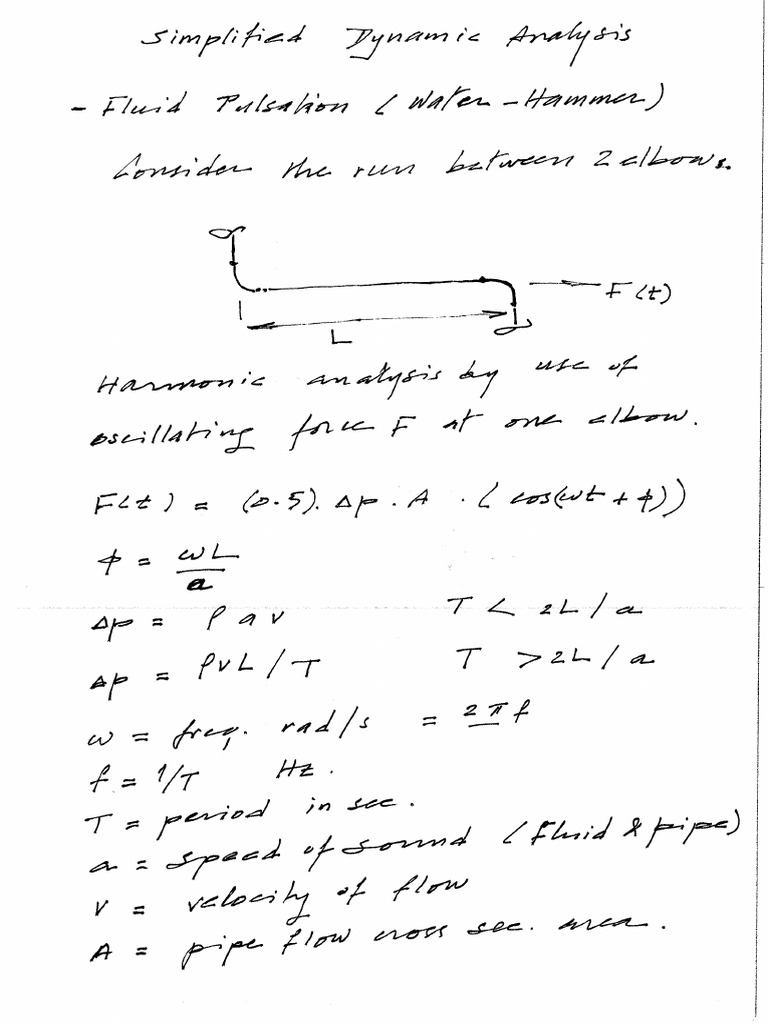 Simplified Dynamic Analysis
- Fluid Pulsation (Water-Hammer)
Consider the run between 2 elbows.
F(t)
L
Harmonic analysis by use of
oscillating force F at one elbow.
F(t) = (0.5). Δp . A . (cos(ωt + φ))
φ = ωL/a
Δp = ρ a v T < 2L/a
Δp = ρvL/T T > 2L/a
ω = freq. rad/s = 2πf
f = 1/T Hz.
T = period in sec.
a = speed of sound (fluid & pipe)
v = velocity of flow
A = pipe flow cross sec. area.